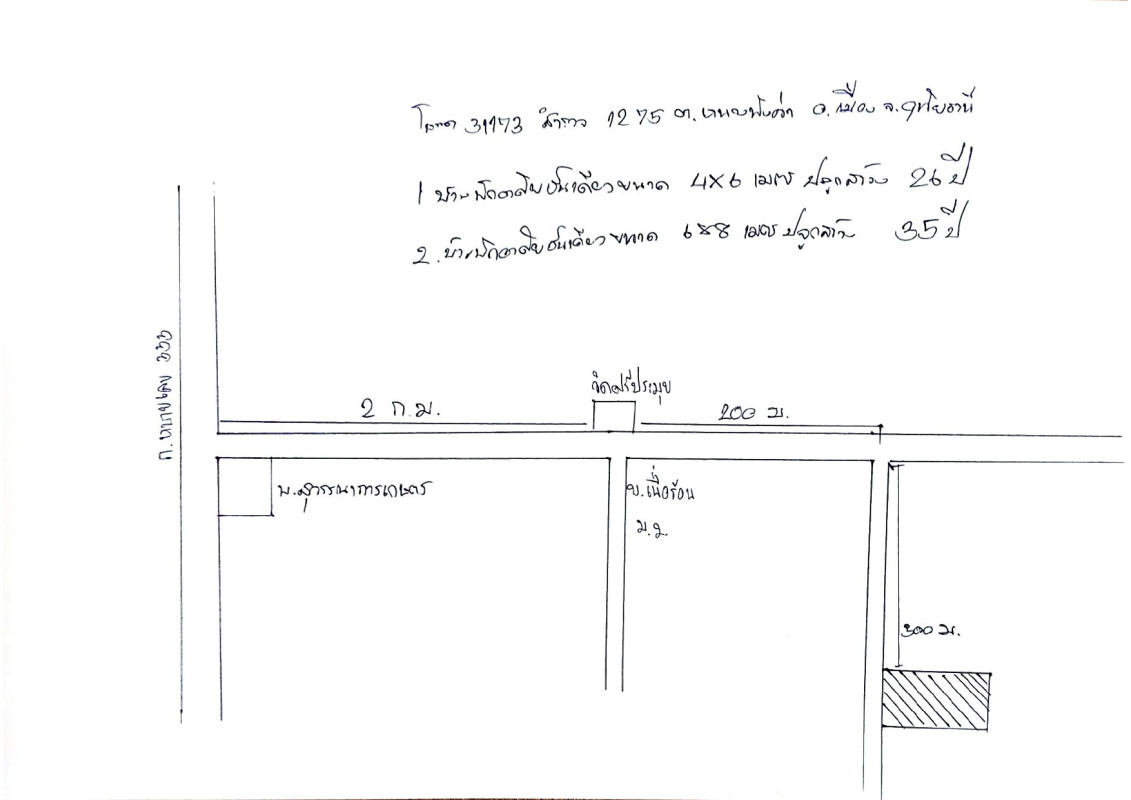 โฉนด 31173 สำรวจ 1275 ต. อ.เมือง จ.อุทัยธานี
1 บ้านพักอาศัยชั้นเดียวขนาด 4x6 เมตร ปลูกสร้าง 26 ปี
2. บ้านพักอาศัยชั้นเดียวขนาด 6x8 เมตร ปลูกสร้าง 35 ปี
ถ.หมายเลข 333
วัดศรีประมุข
2 ก.ม.
200 ม.
บ.เนื้อร้อน
ม.2
300 ม.